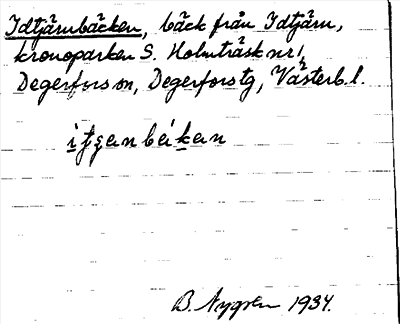 Idtjärnbäcken, bäck från Idtjärn,
kronoparken S. Holmträsk nr 1,
Degerfors sn, Degerfors tg, Västerb. l.
B. Nygren 1934.